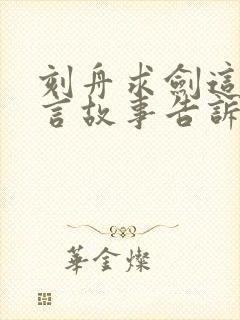 刻舟求劍這
言故事告訴
華金燦